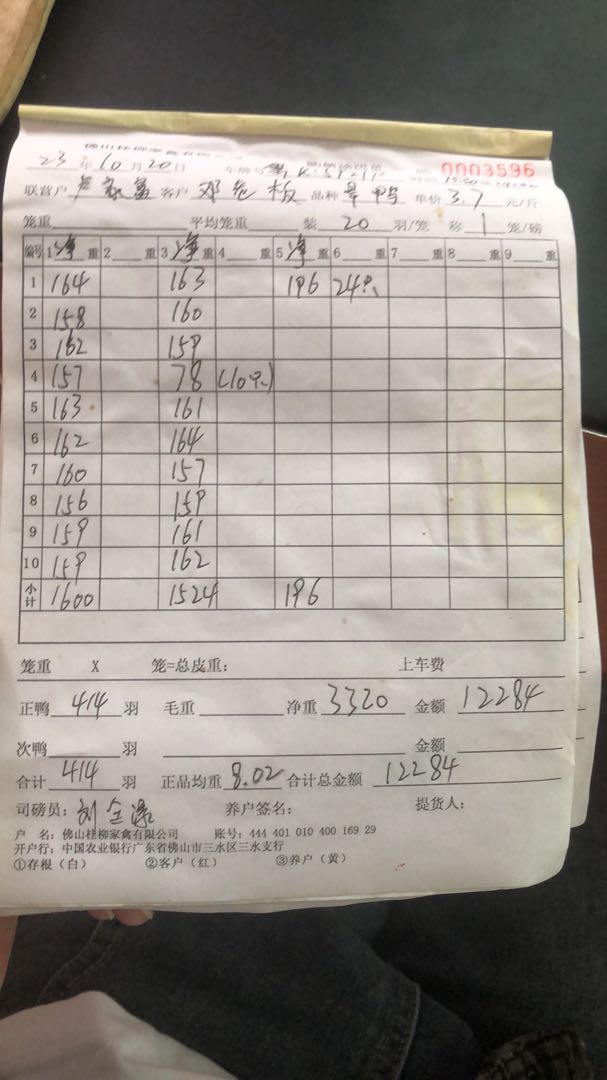 0003596
23年10月20日 车牌号
联营户 客户 邓老板 品种 旱鸭 单价3.7元/斤
笼重 平均笼重 装20羽/笼 称1笼/磅
编号 1净重 2重 3净重 4重 5净重 6重 7重 8重 9重
1 164 163 196 24只
2 158 160
3 162 159
4 157 78 (10只)
5 163 161
6 162 164
7 160 157
8 156 159
9 159 161
10 159 162
小计 1600 1524 196
笼重 X 笼=总皮重: 上车费
正鸭414羽 毛重 净重3320 金额12284
次鸭 羽 金额
合计414羽 正品均重8.02 合计总金额12284
司磅员: 养户签名: 提货人:
户 名: 佛山桂柳家禽有限公司 账号: 444 401 010 400 169 29
开户行: 中国农业银行广东省佛山市三水区三水支行
①存根(白) ②客户(红) ③养户(黄)